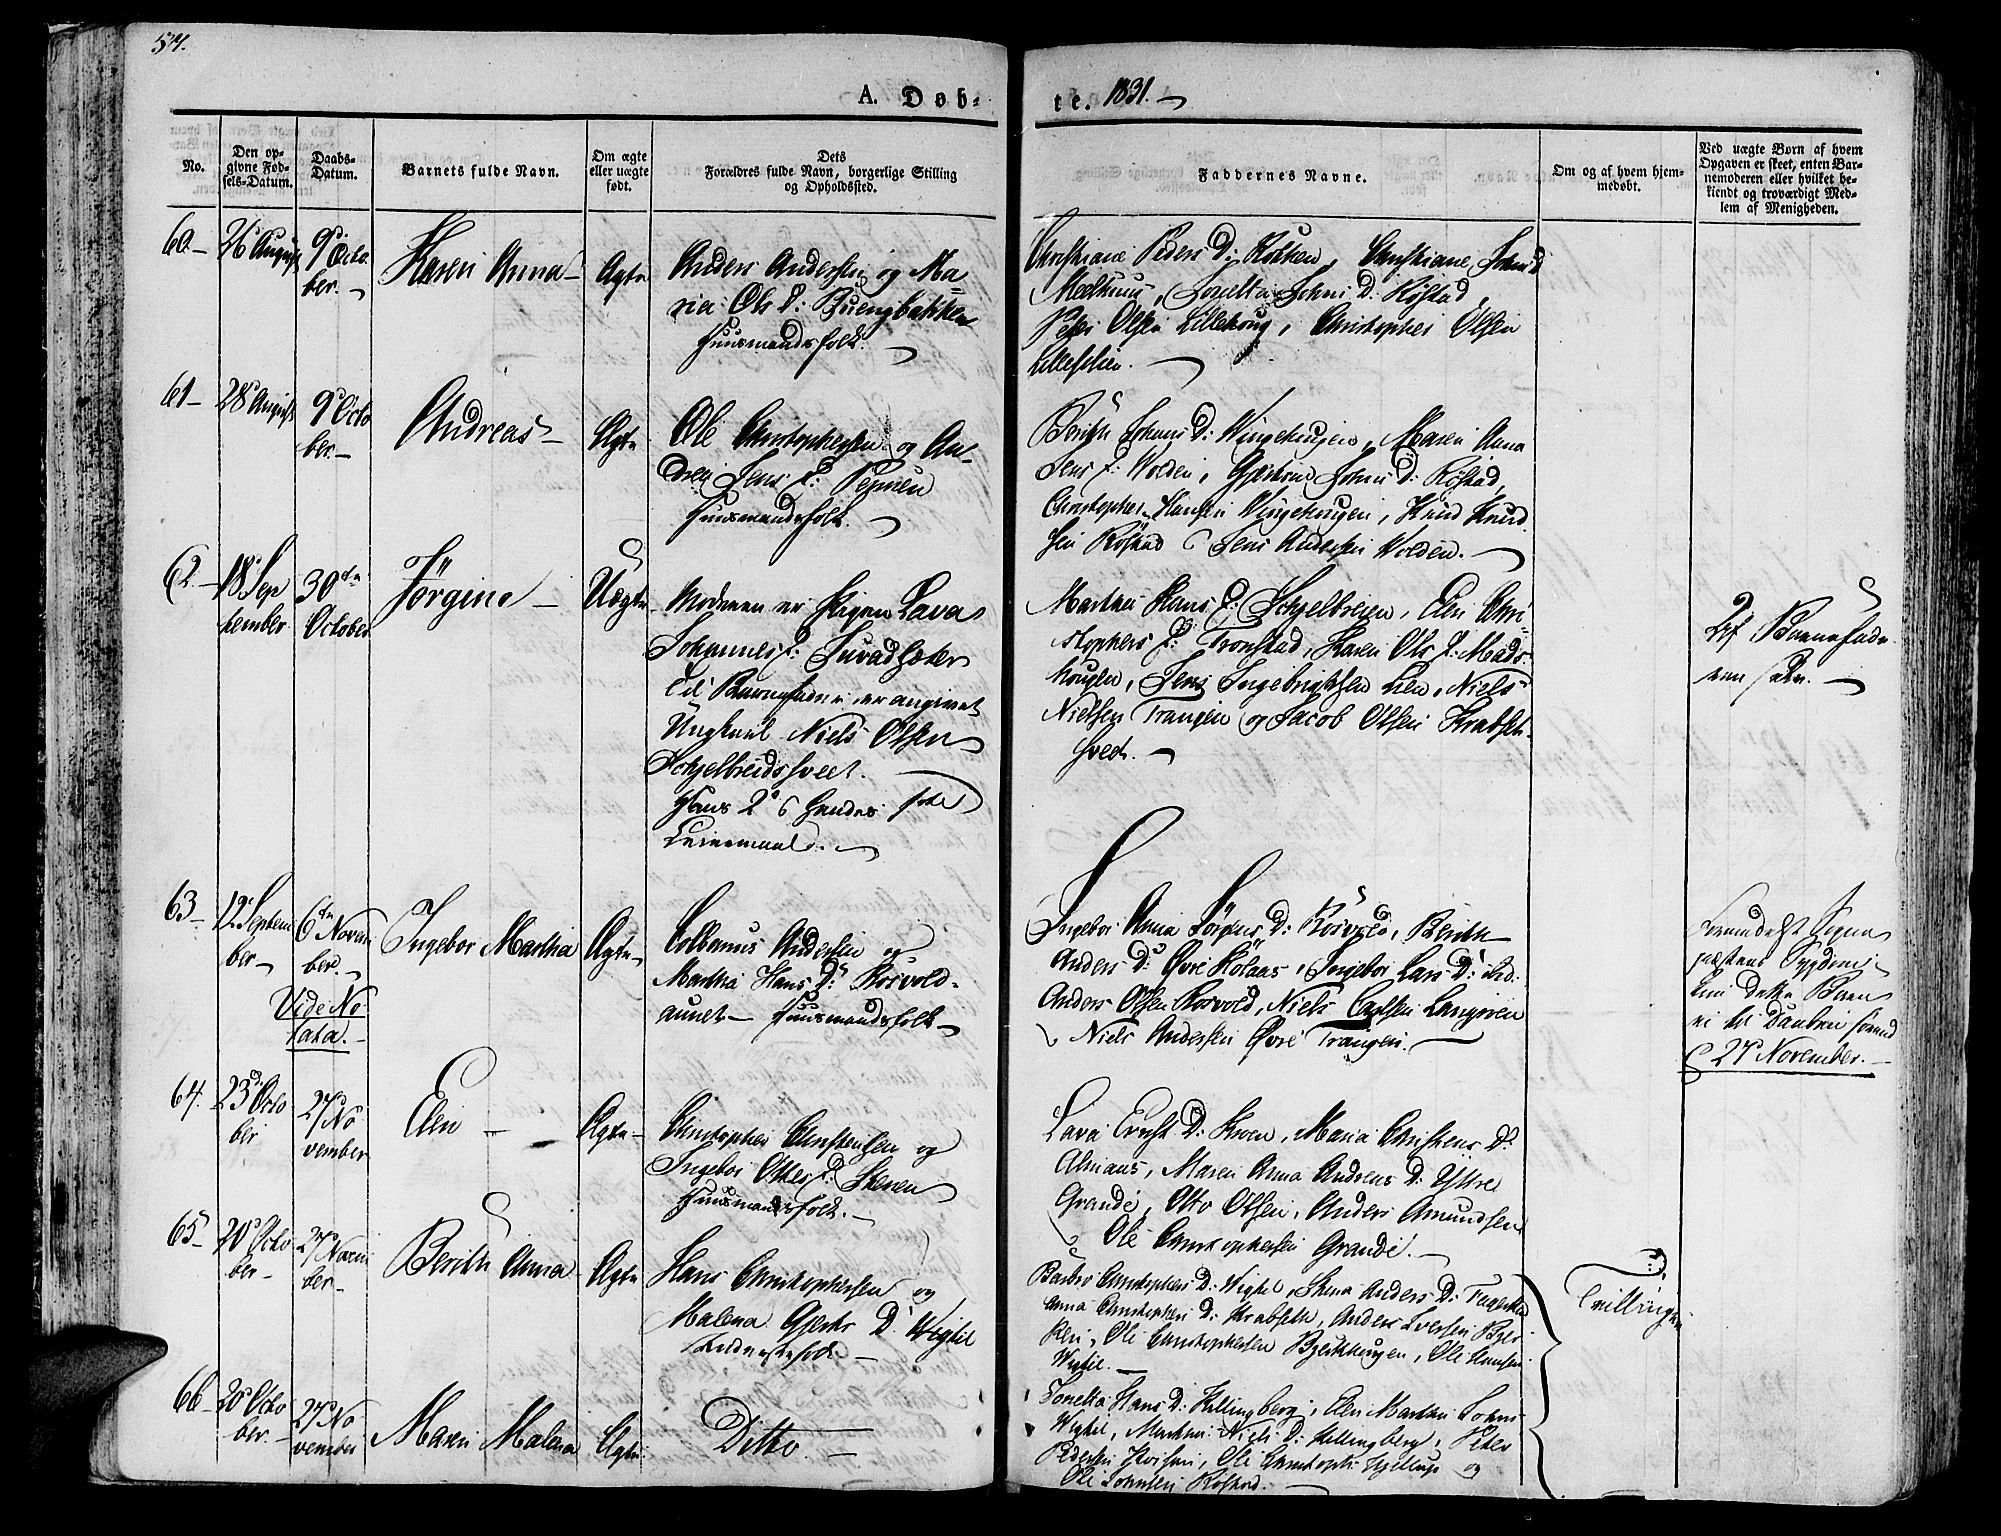 574.
A. Døb-
te. 1831.
No.
Den op-
givne Fød-
sels-Datum.
Daabs-
Datum.
Barnets fulde Navn.
Om ægte
eller uægte
født.
Dets
Forældres fulde Navn, borgerlige Stilling
og Opholdssted.
Faddernes Navne.
Om og af hvem hjem-
medøbt.
Ved uægte Børn af hvem
Opgaven er skeet, enten Bar-
nemoderen eller hvilket be-
kiendt og troværdigt Med-
lem af Menigheden.
60 –
26 August
9de Octo
ber. –
Karen Anna –
Ægte
Anders Andersen og Ma-
ria Ols D: Buengbakken
Huusmandsfolk.
Christiane Peders D: Røkken, Christiane Johns D
Meelhuus, Johns D: Røstad,
Peter Olsen Lillehoug, Christopher Olsen
61 –
28 August
9de Octo
ber. –
Andreas –
Ægte
Ole Christophersen og An-
drea Jens D:
Huusmandsfolk.
Berith Johans D: Wingehugen, Maren Anna
Jens D: Wolden, Johns D: Røstad,
Christopher Hansen Wingehugen, Knud Knud
sen Røstad & Jens Andersen Wolden. –
62. –
18 Sep
tember
30te
October
Jørgine –
Uægte
Moderen er Pigen Lava
Johannes D:
til Barnefader er angivet
Ungkarl Niels Olsen
Hans 2de & hendes 1ste
Leiermaal. –
Marthe Hans D: Schjelbreien, Elen Chri-
stophers D: Tronstad, Karen Ols D: Mads-
hougen, Jens Ingebrigtsen Lien, Niels
Nielsen Trangen og Jacob Olsen Krabset-
svedt. –
Af Barnefade-
ren selv. –
63 –
12 Septem
ber –
6te Novem
ber. –
Vide No
tata. –
Ingebor Martha
Ægte –
Colbanus Andersen og
Martha Hans D: Rosvold-
aunet – Huusmandsfolk –
Ingebor Anna Jørgens D: Berith
Anders D: Øvre Kolaas, Ingebor Lars D: ibd:
Anders Olsen Rosvold, Niels Carlsen Langøren
& Niels Andersen Øvre Trangen.
Formedelst Sogne
præstens Sygdom
kom dette Barn
ei til Daaben førend
27 November. –
64.
23de Octo
ber
27 No
vember
Elen –
Ægte –
Christopher Christensen og
Ingebor Ottes D:
Huusmandsfolk. –
Lava D: Moen, Maria Christens D:
Almaas, Maren Anna Anders D: Yttre
Grande, Otto Olsen, Anders Amundsen
Ole Christophersen Grande. –
65 –
20 Octo
ber –
27 Novem
ber –
Berith Anna
Ægte
Hans Christophersen og
Malena D: Wigtil
Barbro Christophers D: Wigtil, Anders D:
Anna Christophers D: Krabseth, Anders Iversen
Ole Christophersen Bjerkhougen, Ole Hansen
Wigtil. –
Trillinger
66 –
20 Octo
ber. –
27 No
vember
Maren Malena
Ægte
Ditto. –
Hans D: Hellingberg, Elen Marthe Johns
Wigtil, Marthe Niels D: Hellingberg, Peter
Pedersen, Ole og
Ole Johnsen Røstad. –